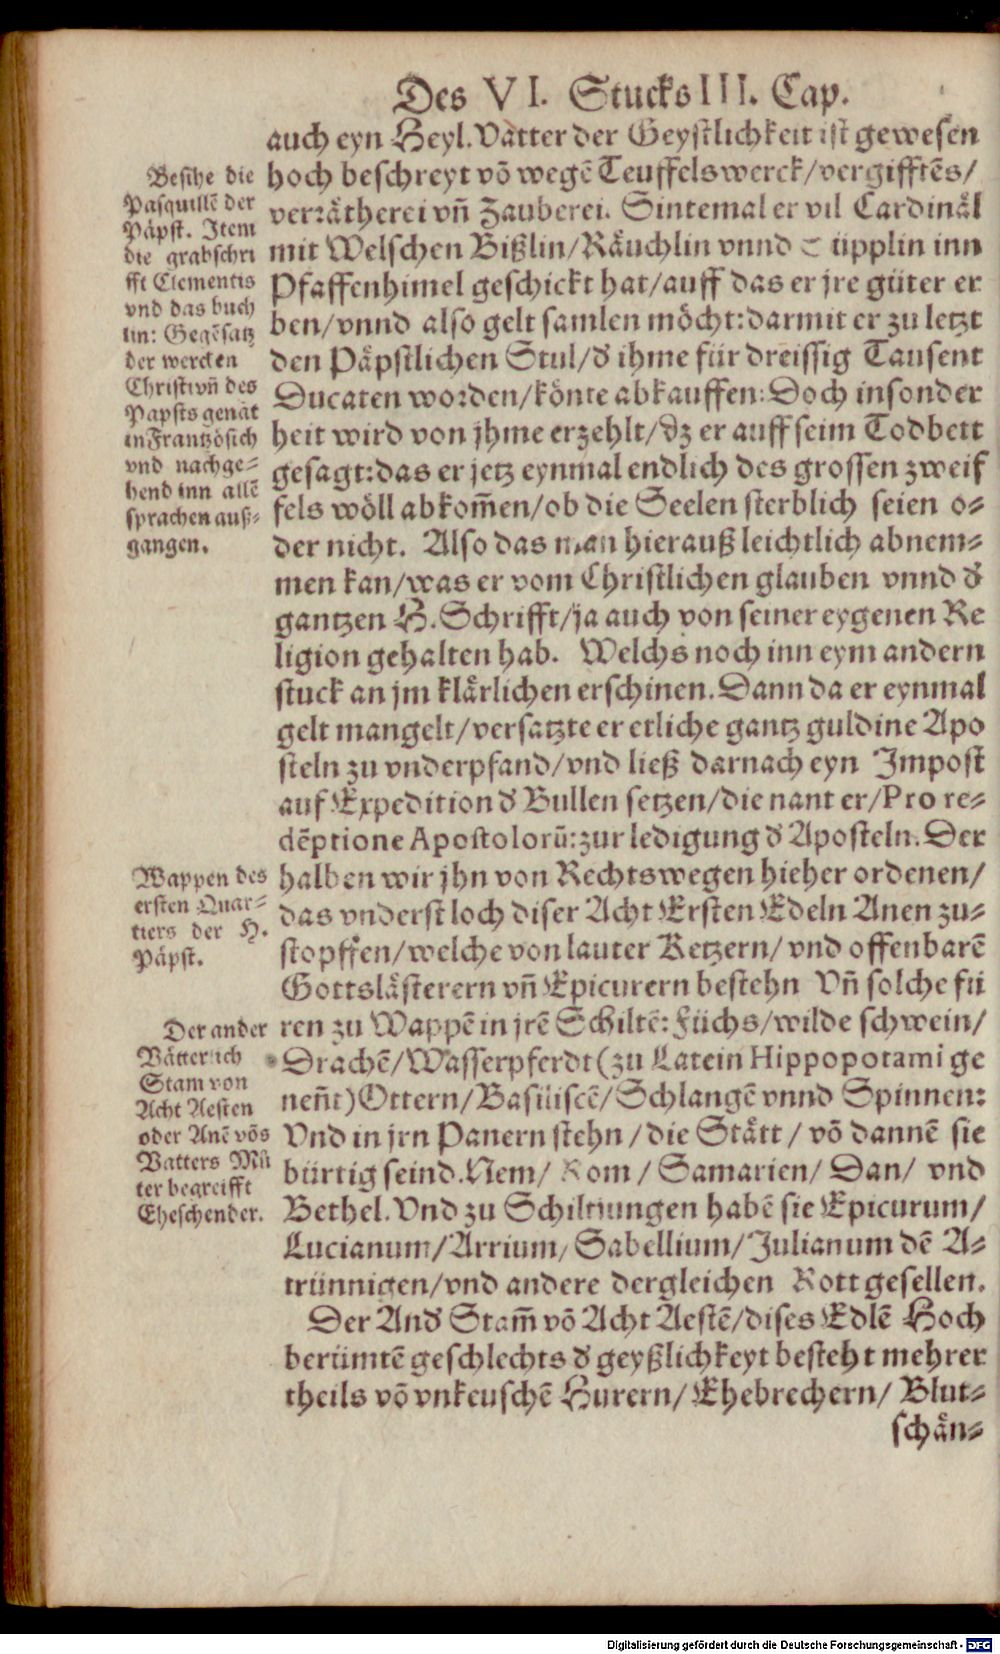 Des VI. Stucks III. Cap.
auch eyn Heyl. Vatter der Geystlichkeit ist gewesen
hoch beschreyt võ wegẽ Teuffelswerck/vergifftẽs/
verrätherei vñ Zauberei. Sintemal er vil Cardinäl
mit Welschen Bißlin/Räuchlin vnnd üpplin inn
Pfaffenhimel geschickt hat/auff das er jre güter er
ben/vnnd also gelt samlen möcht:darmit er zu letzt
den Päpstlichen Stul/d' ihme für dreissig Tausent
Ducaten worden/könte abkauffen: Doch insonder
heit wird von jhme erzehlt/dz er auff seim Todbett
gesagt:das er jetz eynmal endlich des grossen zweif
fels wöll abkom̃en/ob die Seelen sterblich seien o⸗
der nicht. Also das man hierauß leichtlich abnem⸗
men kan/was er vom Christlichen glauben vnnd d'
gantzen H. Schrifft/ja auch von seiner eygenen Re
ligion gehalten hab. Welchs noch inn eym andern
stuck an jm klärlichen erschinen. Dann da er eynmal
gelt mangelt/versatzte er etliche gantz guldine Apo
steln zu vnderpfand/vnd ließ darnach eyn Impost
auf Expedition d' Bullen setzen/die nant er/Pro re⸗
dẽptione Apostolorũ: zur ledigung d' Aposteln. Der
halben wir jhn von Rechtswegen hieher ordenen/
das vnderst loch diser Acht Ersten Edeln Anen zu⸗
stopffen/welche von lauter Ketzern/vnd offenbarẽ
Gottslästerern vñ Epicurern bestehn Vñ solche fü
ren zu Wappẽ in jrẽ Schiltẽ: Füchs/wilde schwein/
Drachẽ/Wasserpferdt(zu Latein Hippopotami ge
neñt)Ottern/Basiliscẽ/Schlangẽ vnnd Spinnen:
Vnd in jrn Panern stehn/die Stätt/võ dannẽ sie
bürtig seind. Nem/ Rom/ Samarien/ Dan/ vnd
Bethel. Vnd zu Schiltjungen habẽ sie Epicurum/
Lucianum/Arrium/ Sabellium/Julianum dẽ A⸗
trünnigen/vnd andere dergleichen Rottgesellen.
Der And' Stam̃ võ Acht Aestẽ/dises Edlẽ Hoch
berümtẽ geschlechts d' geyßlichkeyt besteht mehrer
theils võ vnkeuschẽ Hurern/ Ehebrechern/ Blut⸗
schän⸗
Besihe die
Pasquillẽ der
Päpst. Item
die grabschri
fft Clementis
vnd das buch
lin: Gegẽsatz
der wercken
Christi vñ des
Papsts genãt
in Frantzösich
vnd nachge⸗
hend inn allẽ
sprachen auß⸗
gangen.
Wappen des
ersten Quar⸗
tiers der H.
Päpst.
Der ander
Vätterlich
Stam von
Acht Aesten
oder Anẽ võs
Vatters Mů
ter begreifft
Eheschender.
Digitalisierung gefördert durch die Deutsche Forschungsgemeinschaft - DFG